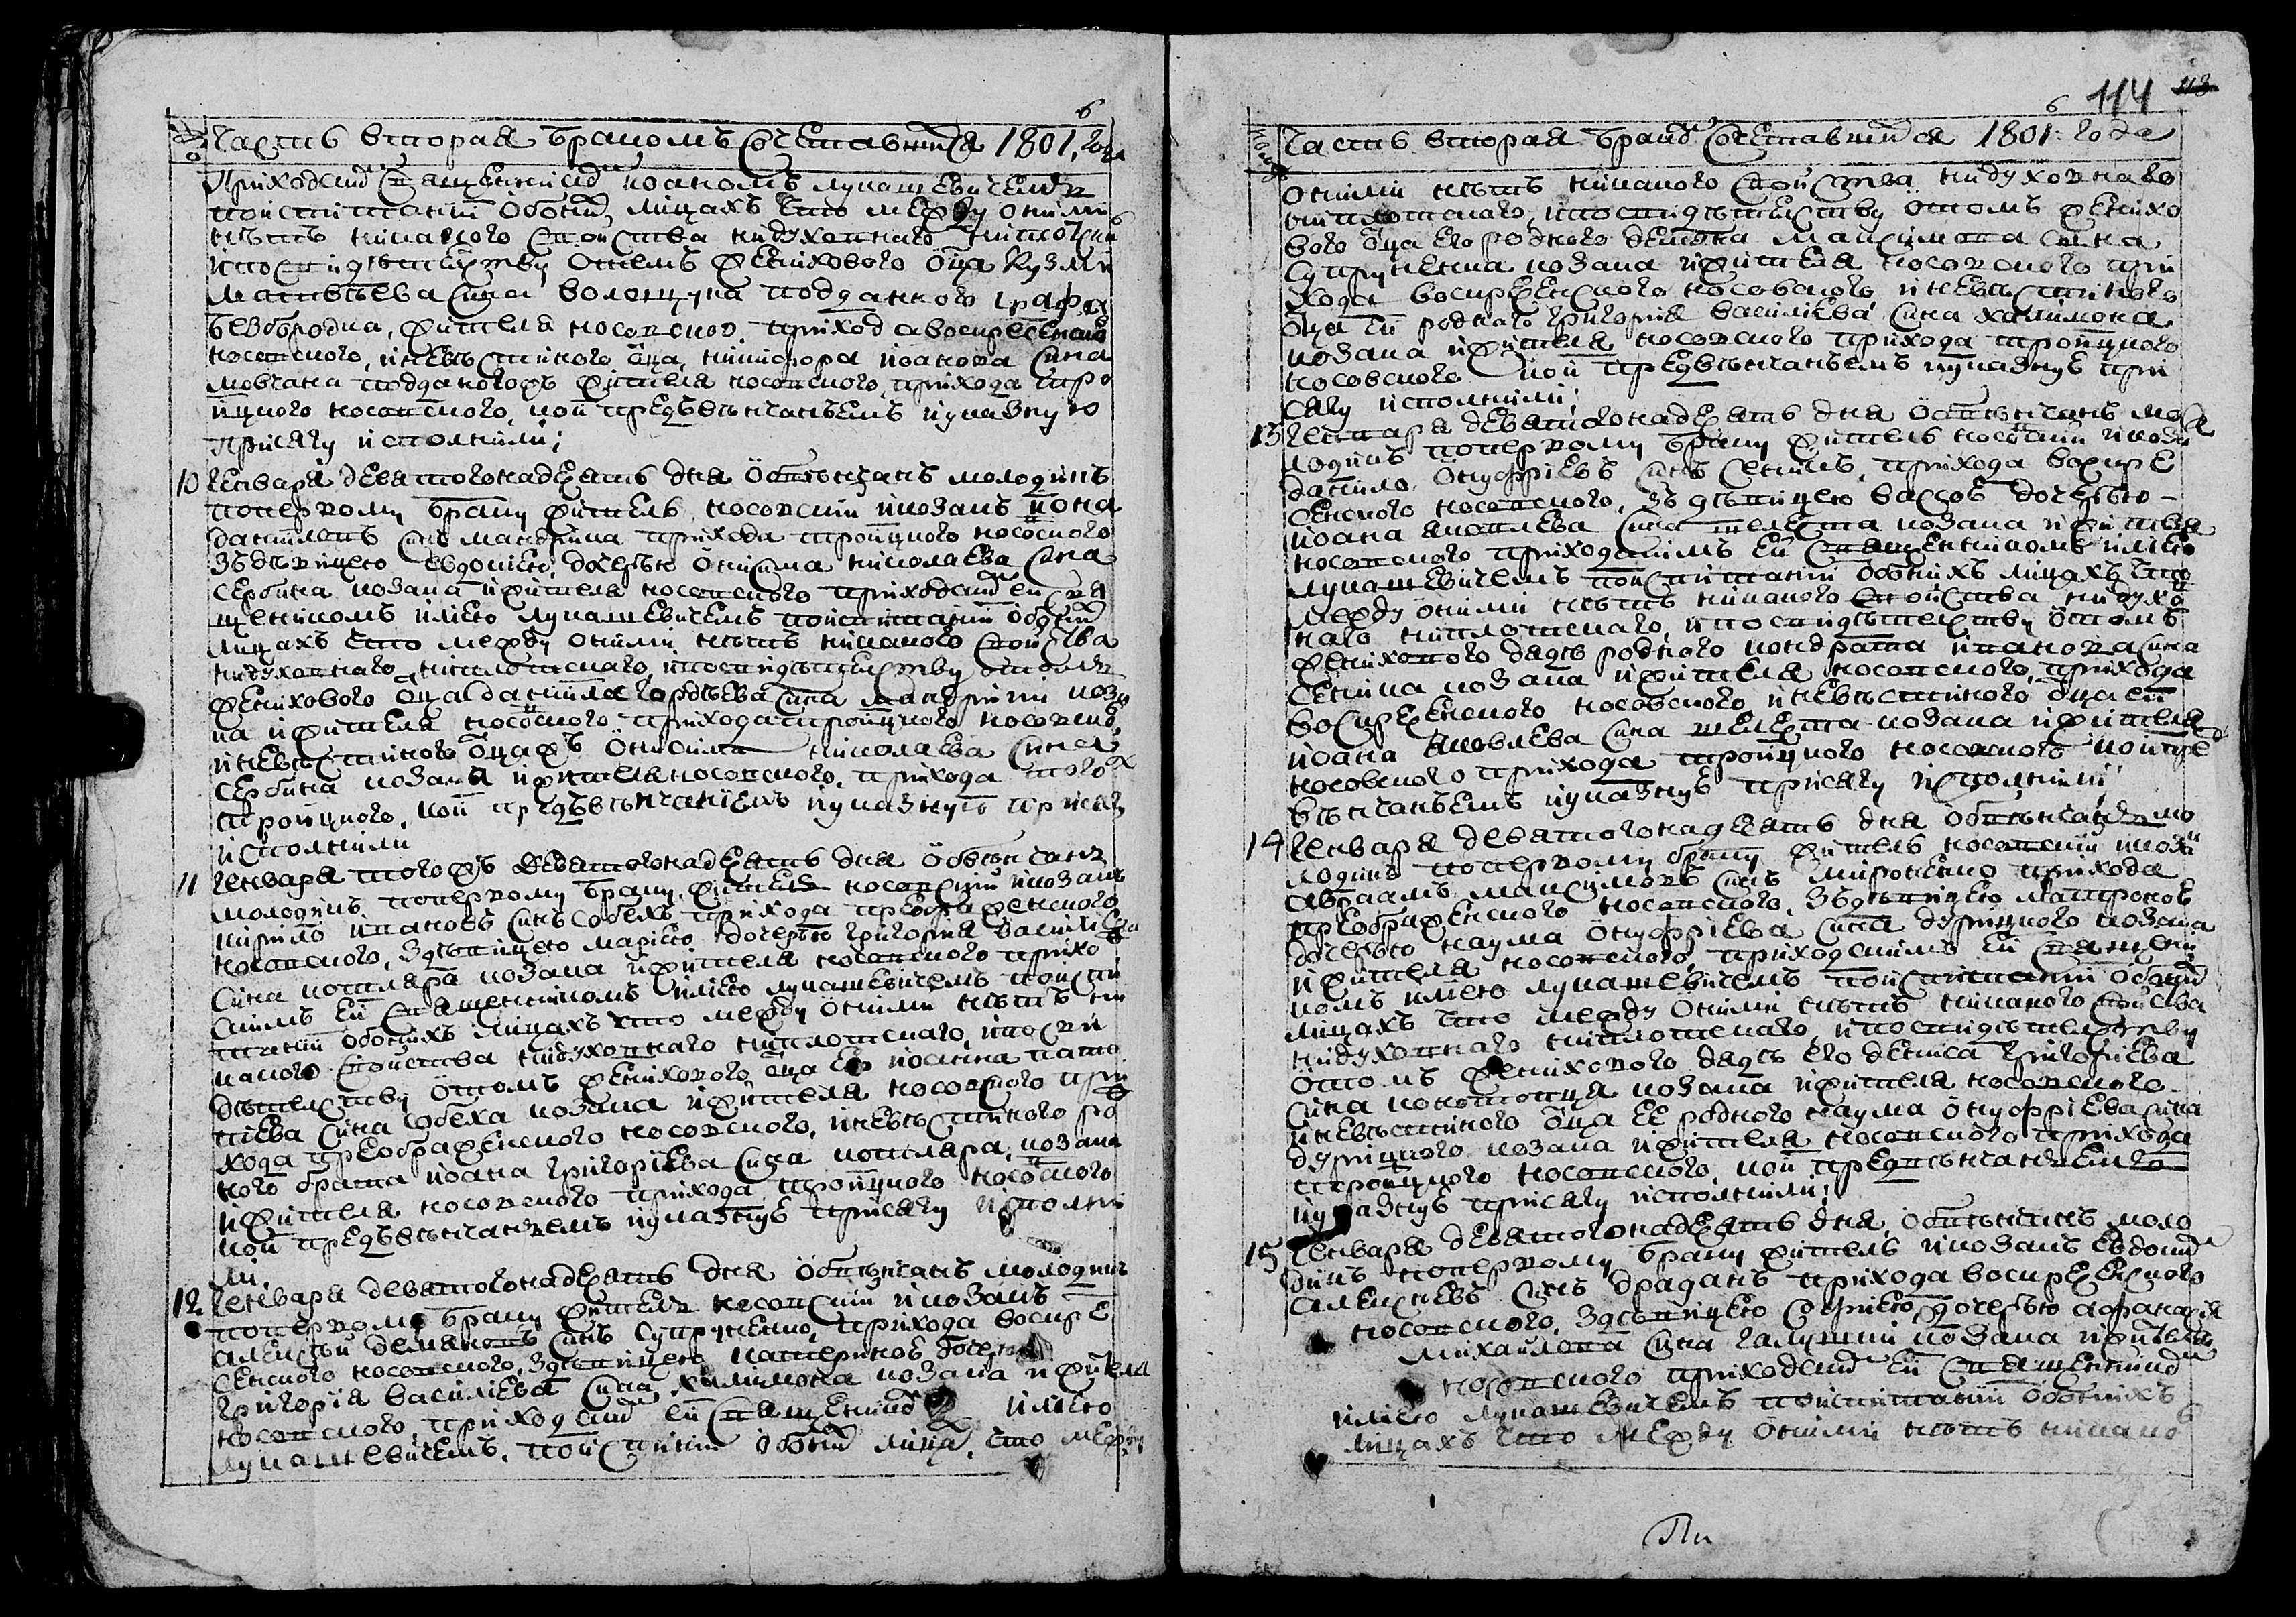 Часть вторая браком сочетавшийся 1801, года
приходским священником иоаном лукашевичем и
поиспитании обоних лицах что между оними
несть никакого свойства нидуховнаго ниплотска
ипосвидетелству отом женихового отца кузми
матвеева сина волощука подданного графа
безбородка, жителя носовског. прихода воскресенского
носовского, иневестиного отца, никифора иоанова сина
мовчана подданогожъ жителя носовского, прихода тро
ицкого носовского, кои предъвенчаниемъ иуказную
присягу исполнили;
10 генваря девятогонадесять дня обвенчанъ молодикъ
попервому браку житель носовский иказакъ иона
даниловъ синъ макдрика прихода троицкого носовского
здевицею евдокиею, дочерью онисима николаева сина
сербина козака ижителя носовского приходским ей свя
щеником илиею лукашевичем поиспитании обоних
лицахъ что между оними нетъ никакого свойства
нидуховнаго, ниплотскаго, ипосвидетелству отомъ
женихового отца данила гордеева сина макдрики коза
ка ижителя носовского прихода троицкого носовског
иневестиного отцажъ онисима николаева сина
сербина козака ижителя носовского, прихода тогож
троицкого, кои предъвенчаниемъ иуказную присягу
исполнили
11 генваря тогожъ девятогонадесять дня обвенчанъ
молодикъ попервому браку, житель носовский иказакъ
кирило ипатовъ синъ собехъ прихода преображенского
носовского, здевицею мариею дочерью григория василиева
сина котляра козака ижителя носовского прихо
скимъ ей священникомъ илиею лукашевичемъ поиспи
тании обоних лицахъ что между оними нетъ ни
какого свойства нидуховнаго ниплотскаго, ипосви
детелству отомъ женихового отца его иоанна ипат
иева сина собеха козака ижителя носовского при
хода преображенского носовского, иневестиного ро
ного брата иоана григориева сина котляра, козака
ижителя носовского прихода троицкого носовского
кои предъвенчаниемъ иуказную присягу исполни
ли.
12. генваря девятогонадесять дня обвенчанъ молодикъ
попервому браку житель носовский иказакъ
алексей демяновъ синъ супруненко, прихода воскре
сенского носовского, здевицею катериною дочерью
григория василиева сина халимона козака ижителя
носовского, приходским ей священником илиею
лукашевичемъ, поиспитании обоних лица, что между
114
Часть вторая браком сочетавшийся 1801: года
оними несть никакого свойства нидуховнаго
ниплотскаго, ипосвидетелству отомъ женихо
вого отца его родного демяна максимова сина
супруненка козака ижителя носовского при
хода воскресенского носовского, иневестиного
отца ей родного григория василиева сина халимона
козака ижителя носовского прихода троицкого
носовского кои предъвенчаниемъ иуказную при
сягу исполнили;
13 генваря девятогонадесять дня обвенчанъ мо
лодикъ попервому браку житель носовский иказа
данило онуфриевъ синъ сенчикъ, прихода воскре
сенского носовского, здевицею вассою дочерью
иоана яковлева сина шелеста козака ижителя
носовского приходскимъ ей священникомъ илиею
лукашевичемъ поиспитании обоних лицахъ что
между оними нетъ никакого свойства нидухо
наго ниплотскаго, ипосвидетелству отомъ
женихового дядъ родного кондрата ипатова сина
сенчика козака ижителя носовского, прихода
воскресенского носовского, иневестиного отца ей
иоана яковлева сина шелеста козака ижителя
носовского прихода троицкого носовского кои пред
венчаниемъ иуказную присягу исполнили;
14 генваря девятогонадесять дня обвенчанъ мо
лодикъ попервому браку житель носовский иказа
авраамъ максимовъ синъ мироненко прихода
преображенского носовского, здевицею матроною
дочерью наума онуфриева сина дурицкого козака
ижителя носовского, приходскимъ ей священни
комъ илиею лукашевичемъ поиспитании обоних
лицахъ что между оними нетъ никакого свойства
нидуховнаго ниплотскаго, ипосвидетелству
отомъ женихового дядъ его дениса григориева
сина конотопца козака ижителя носовского
иневестиного отца ее родного наума онуфриева сина
дурицкого козака ижителя носовского прихода
троицкого носовского, кои предвенчаниемъ
иуказную присягу исполнили;
15 генваря девятогонадесять дня, обвенчанъ моло
дикъ попервому браку житель иказакъ евдоким
алексеевъ синъ драданъ прихода воскресенского
носовского, здевицею софиею, дочерью афанасия
михайлова сина галушки козака ижителя
носовского приходским ей священником
илиею лукашевичемъ поиспитании обоних
лицахъ что между оними нетъ никако